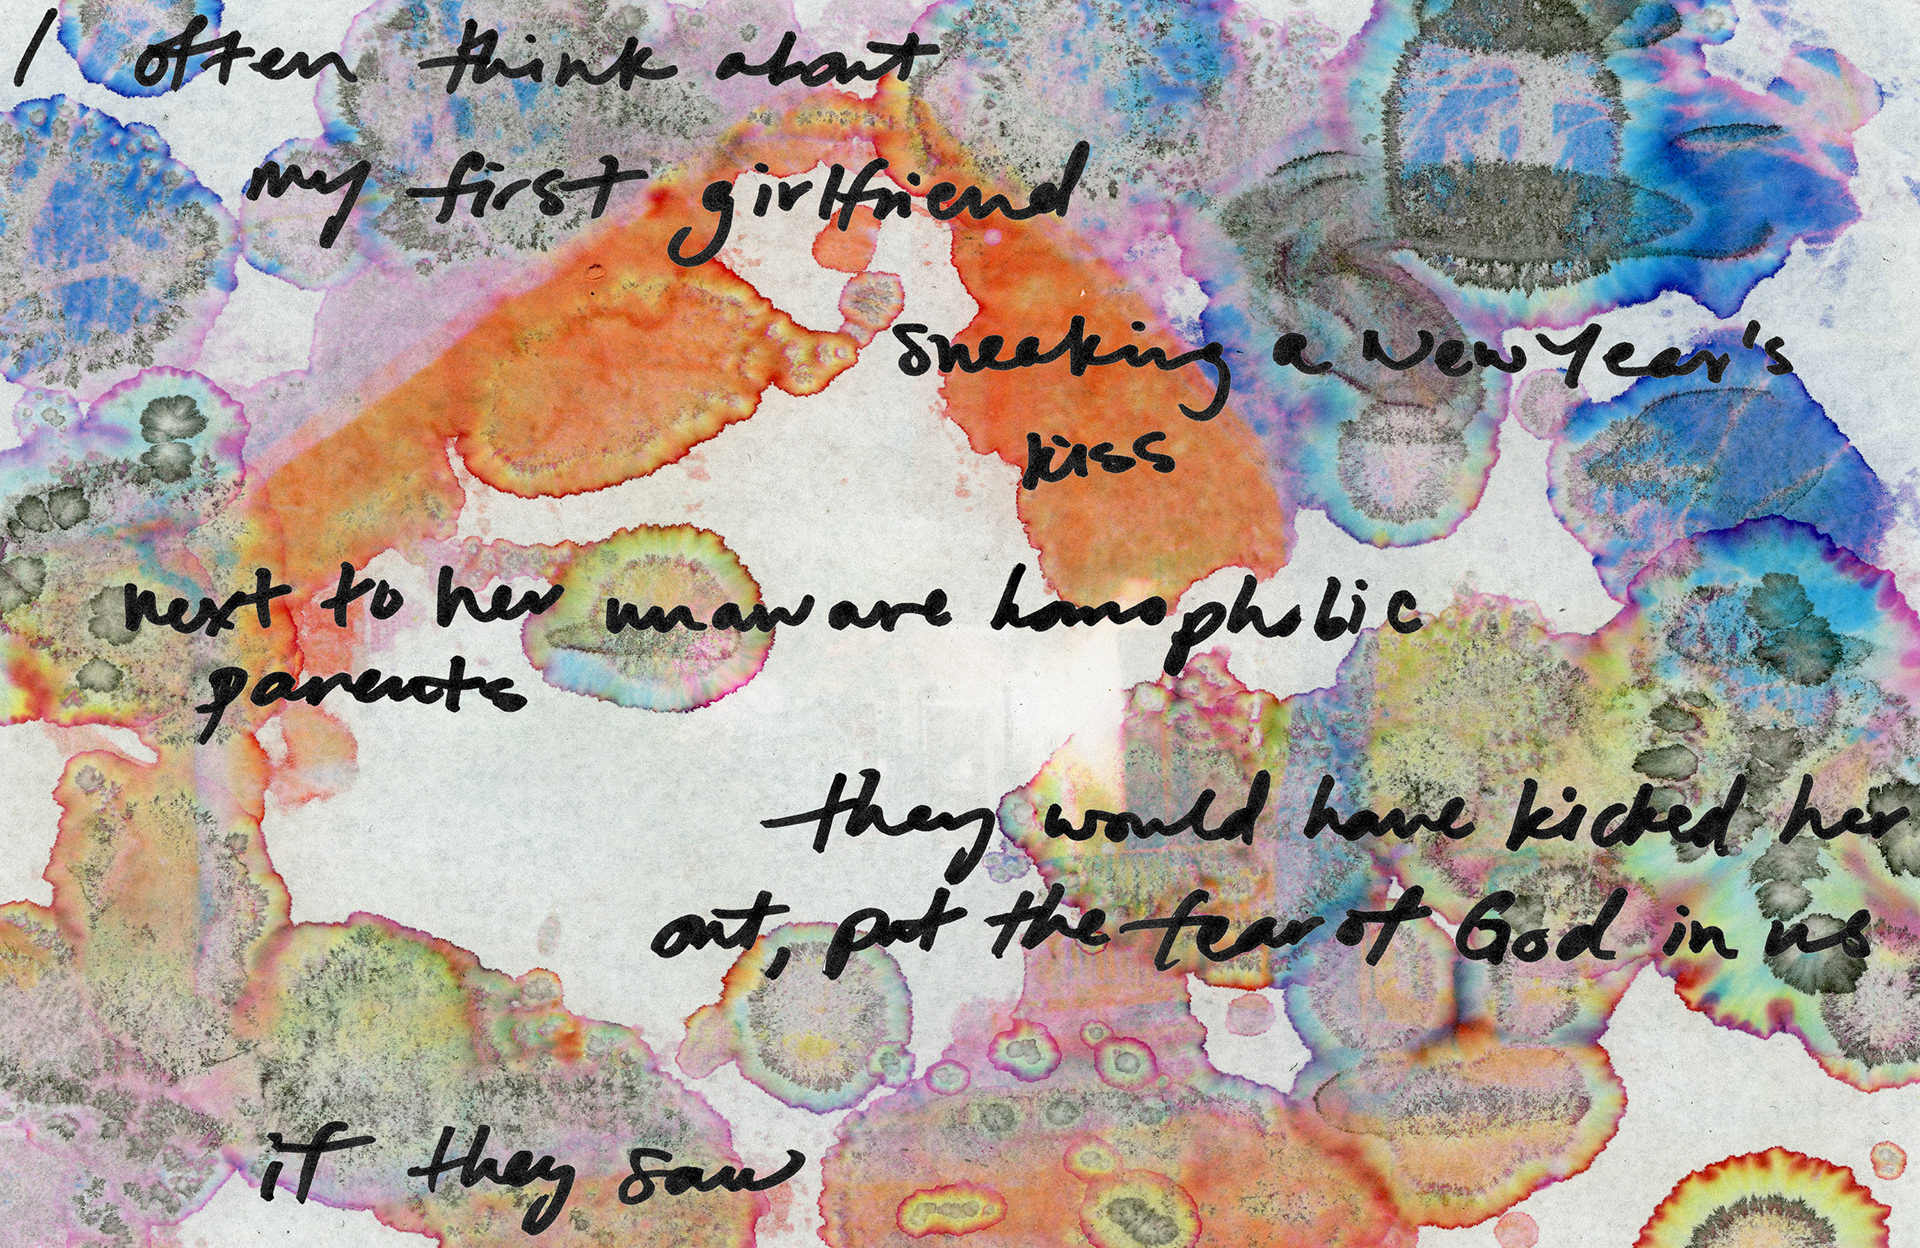 I often think about
my first girlfriend
sneaking a New Year's
kiss
next to her unaware homophobic
parents
they would have kicked her
out, put the fear of God in us
if they saw